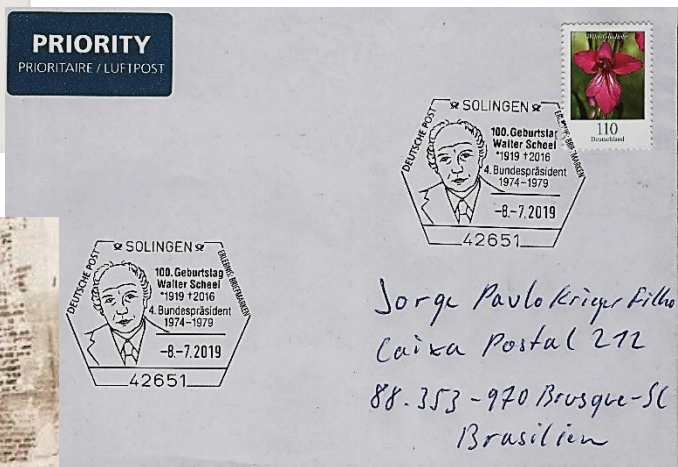 PRIORITY
PRIORITAIRE / LUFTPOST
110
Deutschland
SOLINGEN
DEUTSCHE POST
ERLEBNIS: BRIEFMARKEN
100. Geburtstag
Walter Scheel
*1919 †2016
4. Bundespräsident
1974-1979
-8.-7.2019
42651
SOLINGEN
DEUTSCHE POST
ERLEBNIS: BRIEFMARKEN
100. Geburtstag
Walter Scheel
*1919 †2016
4. Bundespräsident
1974-1979
-8.-7.2019
42651
Jorge Paulo Krieger Filho
Caixa Postal 212
88.353-970 Brusque-SC
Brasilien